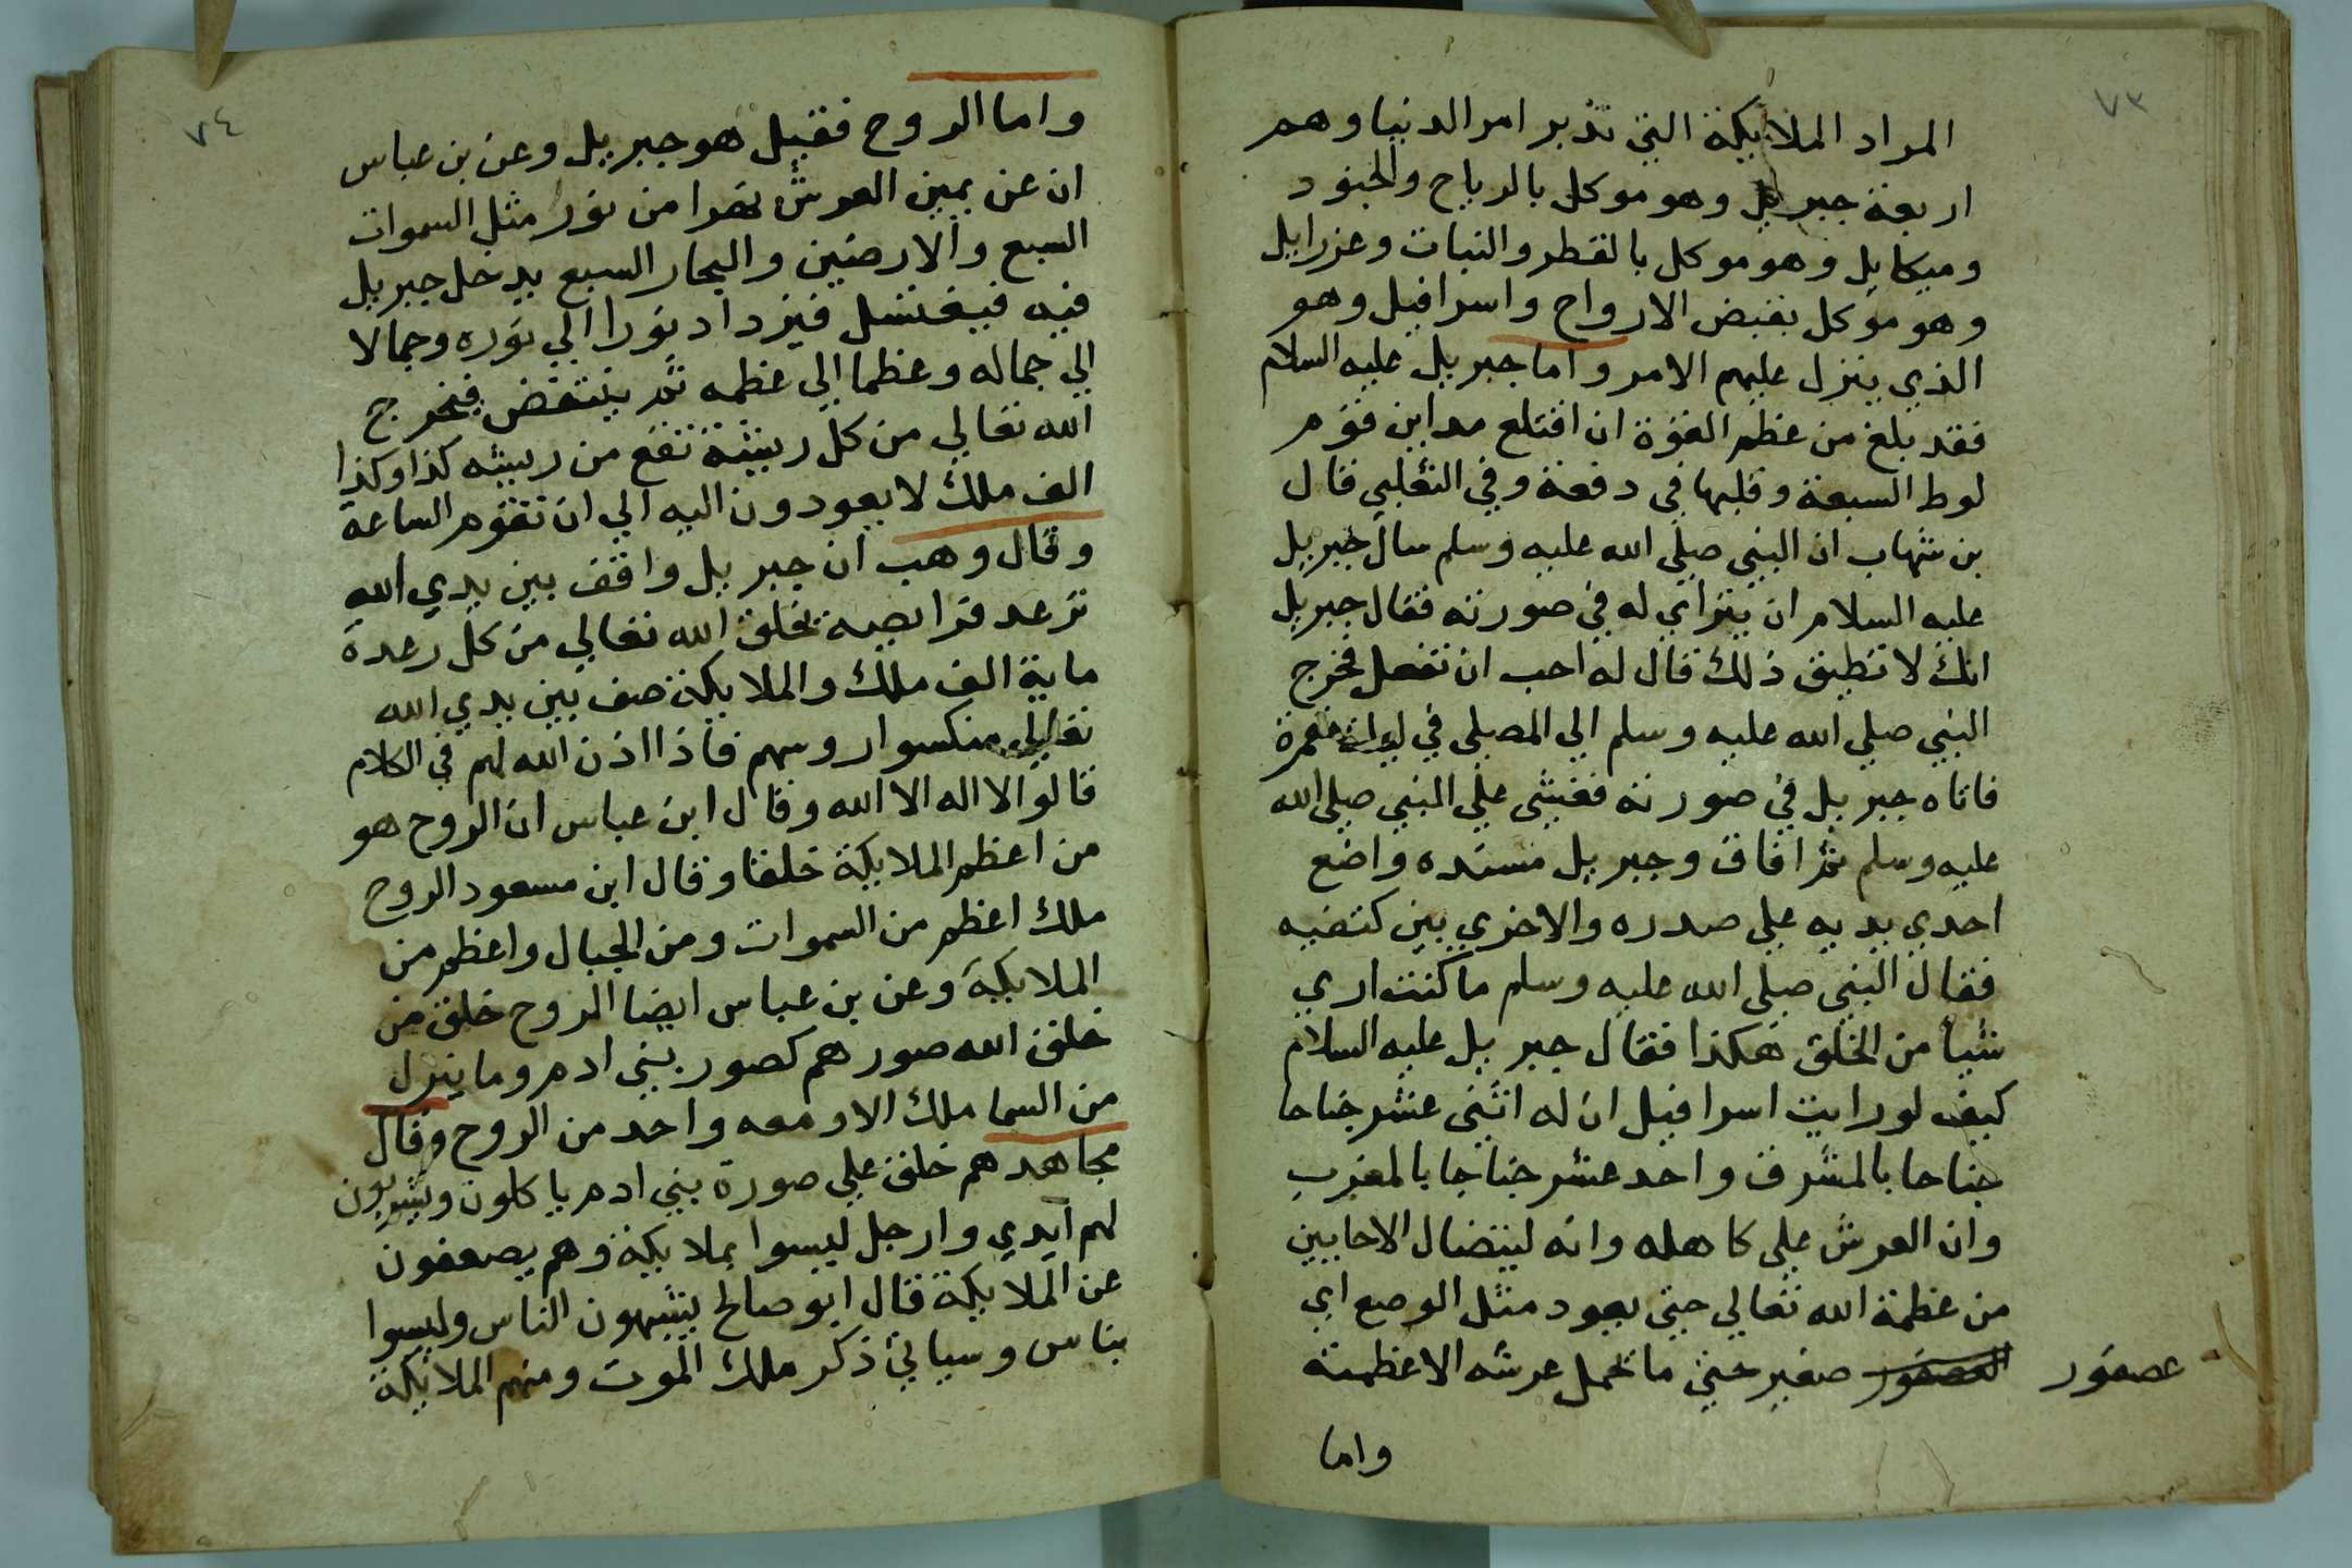 ٧٣
المراد الملايكة التي تدبر امر الدنيا وهم
اربعة جبريل وهو موكل بالرياح والجنود
وميكايل وهو موكل بالقطر والنبات وعزرايل
وهو موكل بقبض الارواح واسرافيل وهو
الذي ينزل عليهم الامر واما جبريل عليه السلام
فقد بلغ من عظم القوة ان اقتلع مداين قوم
لوط السبعة وقلبها في دفعة وفي الثعلبي قال
بن شهاب ان النبي صلي الله عليه وسلم سال جبريل
عليه السلام ان يترااي له في صورته فقال جبريل
انك لا تطيق ذلك قال له احب ان تفعل فخرج
النبي صلي الله عليه وسلم الي المصلي في ليلة مقمرة
فاتاه جبريل في صورته فغشى علي النبي صلي الله
عليه وسلم ثم افاق وجبريل مسنده واضع
احدي يديه علي صدره والاخري بين كتفيه
فقال النبي صلي الله عليه وسلم ما كنت اري
شيا من الخلق هكذا فقال جبريل عليه السلام
كيف لو رايت اسرافيل ان له اثنى عشر جناحا
جناحا بالمشرق واحد عشر جناحا بالمغرب
وان العرش علي كاهله وانه ليتضال الاحايين
من عظمة الله تعالي حتى يعود مثل الوصع اي
العصفور صغير حتي ما تحمل عرشه الا عظمته
عصفور
واما
٧٤
واما الروح فقيل هو جبريل وعن بن عباس
ان عن يمين العرش نهرا من نور مثل السموات
السبع والارضين والبحار السبع يدخل جبريل
فيه فيغتسل فيزداد نورا الي نوره وجمالا
الي جماله وعظما الي عظمه ثم ينتفض فيخرج
الله تعالي من كل ريشة تقع من ريشه كذا وكذا
الف ملك لا يعودون اليه الي ان تقوم الساعة
وقال وهب ان جبريل واقف بين يدي الله
ترعد فرايصه يخلق الله تعالي من كل رعدة
ماية الف ملك والملايكة صف بين يدي الله
تعالي منكسوا روسهم فاذا اذن الله لهم في الكلام
قالوا لا اله الا الله وقال ابن عباس ان الروح هو
من اعظم الملايكة خلقا وقال ابن مسعود الروح
ملك اعظم من السموات ومن الجبال واعظم من
الملايكة وعن بن عباس ايضا الروح خلق من
خلق الله صورهم كصور بني ادم وما ينزل
من السما ملك الا ومعه واحد من الروح وقال
مجاهد هم خلق علي صورة بني ادم ياكلون ويشربون
لهم ايدي وارجل ليسوا بملايكة وهم يصعفون
عن الملايكة قال ابو صالح يشبهون الناس وليسوا
بناس وسياتي ذكر ملك الموت ومنهم الملايكة